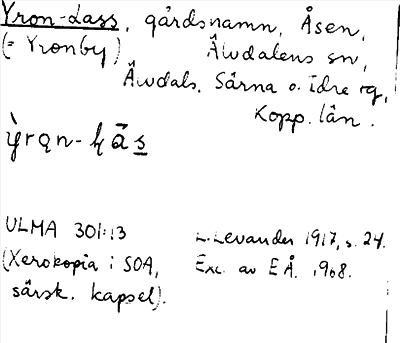 Yron-Lass, gårdsnamn, Åsen,
(= Yronby) Älvdalens sn,
Älvdals, Särna o. Idre tg,
Kopp. län.
ỳrọn-lās
ULMA 301:13 L. Levander 1917, s. 24.
(Xerokopia i SOA, Exc. av E Å. 1968.
särsk. kapsel).